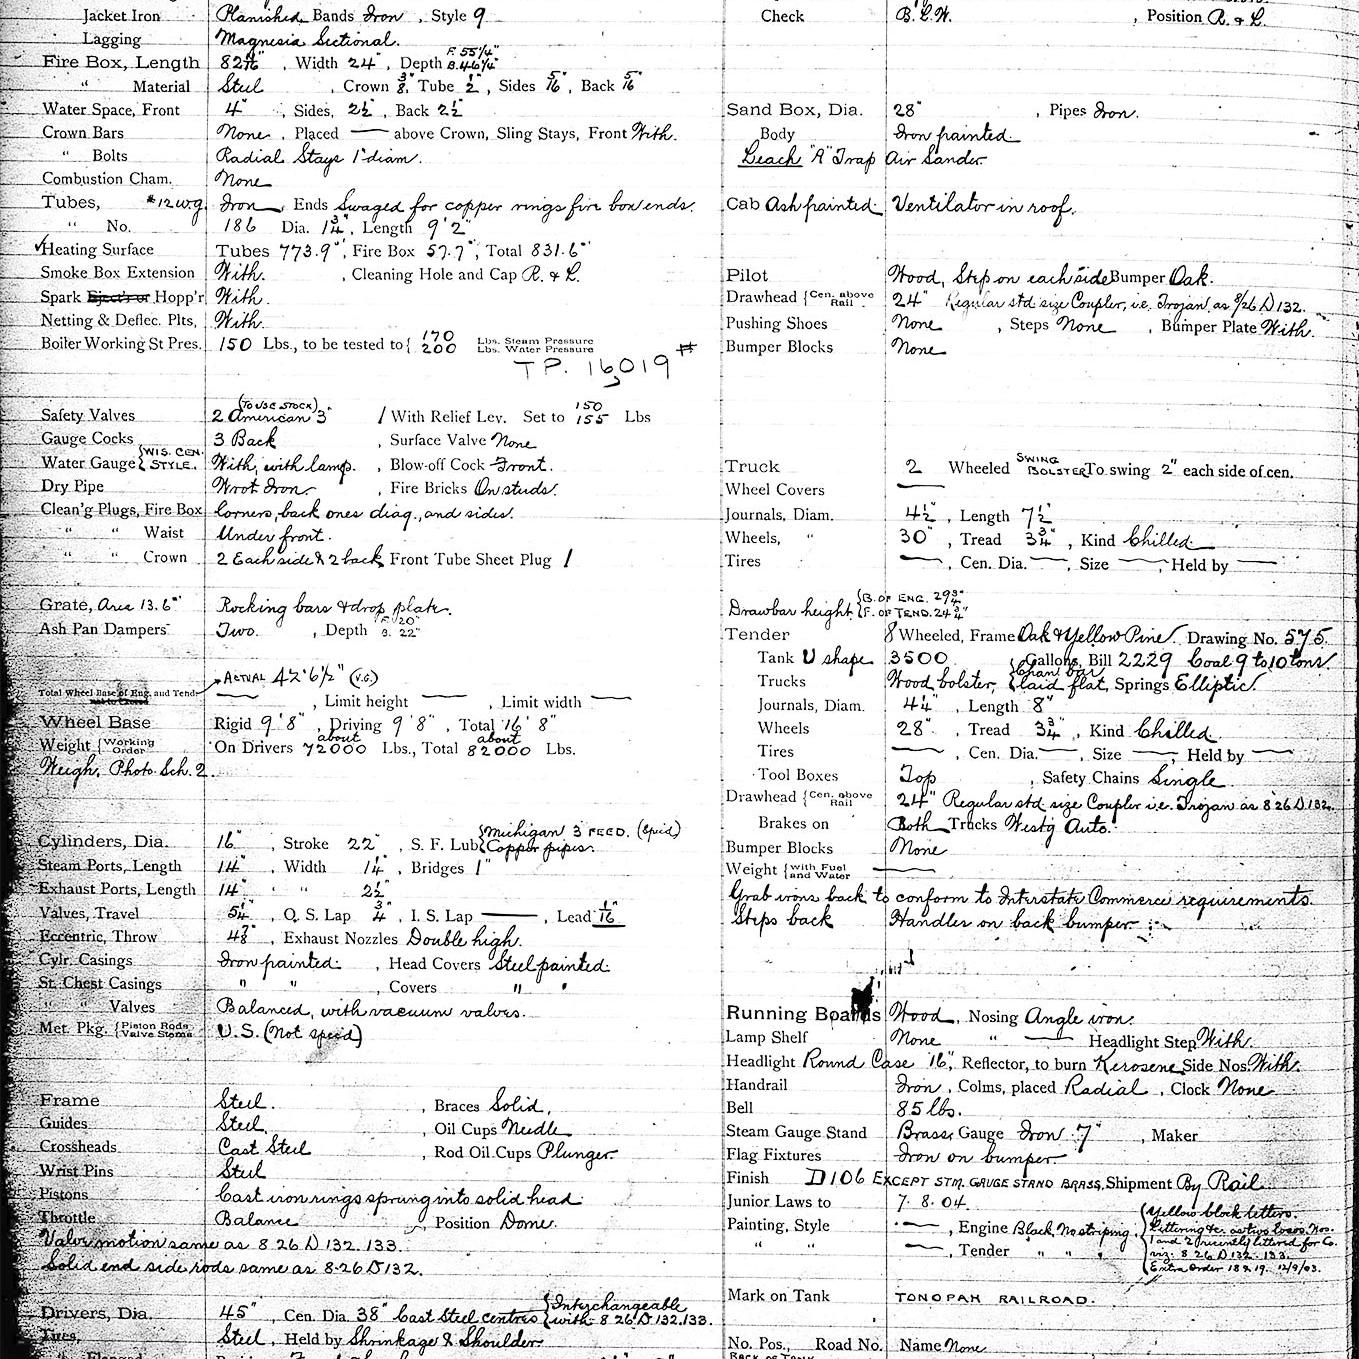 Jacket Iron Planished, Bands Iron, Style 9
Lagging Magnesia Sectional.
Fire Box, Length 82 7/16", Width 24", Depth F. 55 1/4" B. 46 1/4"
" Material Steel, Crown 3/8", Tube 1/2", Sides 5/16", Back 5/16"
Water Space, Front 4", Sides, 2 1/2", Back 2 1/2"
Crown Bars None, Placed — above Crown, Sling Stays, Front With.
" Bolts Radial Stays 1" diam.
Combustion Cham. None
Tubes, #12 w.g. Iron, Ends Swaged for copper rings fire box ends.
" No. 186 Dia. 1 3/4", Length 9' 2"
Heating Surface Tubes 773.9 □', Fire Box 57.7 □', Total 831.6 □'
Smoke Box Extension With., Cleaning Hole and Cap R. & L.
Spark Eject'r or Hopp'r With.
Netting & Deflec. Plts, With.
Boiler Working St Pres. 150 Lbs., to be tested to { 170 Lbs. Steam Pressure 200 Lbs. Water Pressure
T.P. 16,019 #
Safety Valves 2 American 3" (TO USE STOCK) 1 With Relief Lev. Set to 150 155 Lbs
Gauge Cocks 3 Back, Surface Valve None
Water Gauge { WIS. CEN. STYLE. With, with lamp., Blow-off Cock Front.
Dry Pipe Wrot Iron, Fire Bricks On studs.
Clean'g Plugs, Fire Box Corners, back ones diag., and sides.
" " Waist Under front.
" " Crown 2 Each side & 2 back Front Tube Sheet Plug 1
Grate, Area 13.6 □' Rocking bars & drop plate.
Ash Pan Dampers Two., Depth F. 20" B. 22"
ACTUAL 42' 6 1/2" (V.G.)
Total Wheel Base of Eng. and Tend. —, Limit height —, Limit width —
Wheel Base Rigid 9' 8", Driving 9' 8", Total 16' 8"
Weight { Working Order On Drivers about 72000 Lbs., Total about 82000 Lbs.
Weigh, Photo. Sch. 2
Cylinders, Dia. 16", Stroke 22", S. F. Lub { Michigan 3 FEED. (Spid) Copper pipes.
Steam Ports, Length 14", Width 1 1/4", Bridges 1"
Exhaust Ports, Length 14", " 2 1/2"
Valves, Travel 5 1/4", O. S. Lap 3/4", I. S. Lap —, Lead 1/16"
Eccentric, Throw 4 7/8", Exhaust Nozzles Double high.
Cylr. Casings Iron painted., Head Covers Steel painted.
St. Chest Casings " ", Covers " "
" " Valves Balanced, with vacuum valves.
Met. Pkg. { Piston Rods Valve Stems U.S. (Not Spcd)
Frame Steel., Braces Solid,
Guides Steel., Oil Cups Needle
Crossheads Cast Steel, Rod Oil Cups Plunger.
Wrist Pins Steel
Pistons Cast iron rings sprung into solid head.
Throttle Balance, Position Dome.
Valve motion same as 8.26 D 132.133.
Solid end side rods same as 8-26 D 132.
Drivers, Dia. 45", Cen. Dia. 38" Cast Steel centres { Interchangeable with 8-26 D 132.133.
Tires, Steel, Held by Shrinkage & Shoulder.
Check B. L. W., Position R. & L.
Sand Box, Dia. 28", Pipes Iron.
Body Iron painted.
Leach "A" Trap Air Sander.
Cab Ash painted. Ventilator in roof.
Pilot Wood, Step on each side Bumper Oak.
Drawhead { Cen. above Rail 24" Regular std size Coupler, i.e. Trojan as 8/26 D 132.
Pushing Shoes None, Steps None, Bumper Plate With.
Bumper Blocks None
Truck 2 Wheeled SWING BOLSTER To swing 2" each side of cen.
Wheel Covers —
Journals, Diam. 4 1/2", Length 7 1/2"
Wheels, " 30", Tread 3 3/4", Kind Chilled.
Tires —, Cen. Dia. —, Size —, Held by —
Drawbar height { B. OF ENG. 29 3/4" F. OF TEND. 24 3/4"
Tender 8 Wheeled, Frame Oak & Yellow Pine. Drawing No. 575.
Tank U shape 3500 Gallons, Bill 2229 Coal 9 to 10 tons.
Trucks Wood bolster, { Chan. bar laid flat, Springs Elliptic.
Journals, Diam. 4 1/4", Length 8"
Wheels 28", Tread 3 3/4", Kind Chilled.
Tires —, Cen. Dia. —, Size —, Held by —
Tool Boxes Top, Safety Chains Single
Drawhead { Cen. above Rail 24" Regular std. size Coupler i.e. Trojan as 8 26 D 132.
Brakes on Both Trucks Westg Auto.
Bumper Blocks None
Weight { with Fuel and Water —
Grab irons back to conform to Interstate Commerce requirements.
Steps back Handles on back bumper.
Running Boards Wood, Nosing Angle iron.
Lamp Shelf None " — Headlight Step With.
Headlight Round Case 16", Reflector, to burn Kerosene, Side Nos. With.
Handrail Iron, Colms, placed Radial, Clock None
Bell 85 lbs.
Steam Gauge Stand Brass, Gauge Iron 7", Maker
Flag Fixtures Iron on bumper.
Finish D106 EXCEPT STM. GAUGE STAND BRASS. Shipment By Rail
Junior Laws to 7. 8. 04.
Painting, Style —, Engine Black, No striping. { Yellow block letters. Lettering &c. as two locos. Nos.
" " —, Tender " " " 1 and 2 recently lettered for Co. viz. 8 26 D 132 - 133. Extra Order 18 & 19. 12/9/03.
Mark on Tank TONOPAH RAILROAD.
No. Pos., Road No. Name None
BACK OF TANK